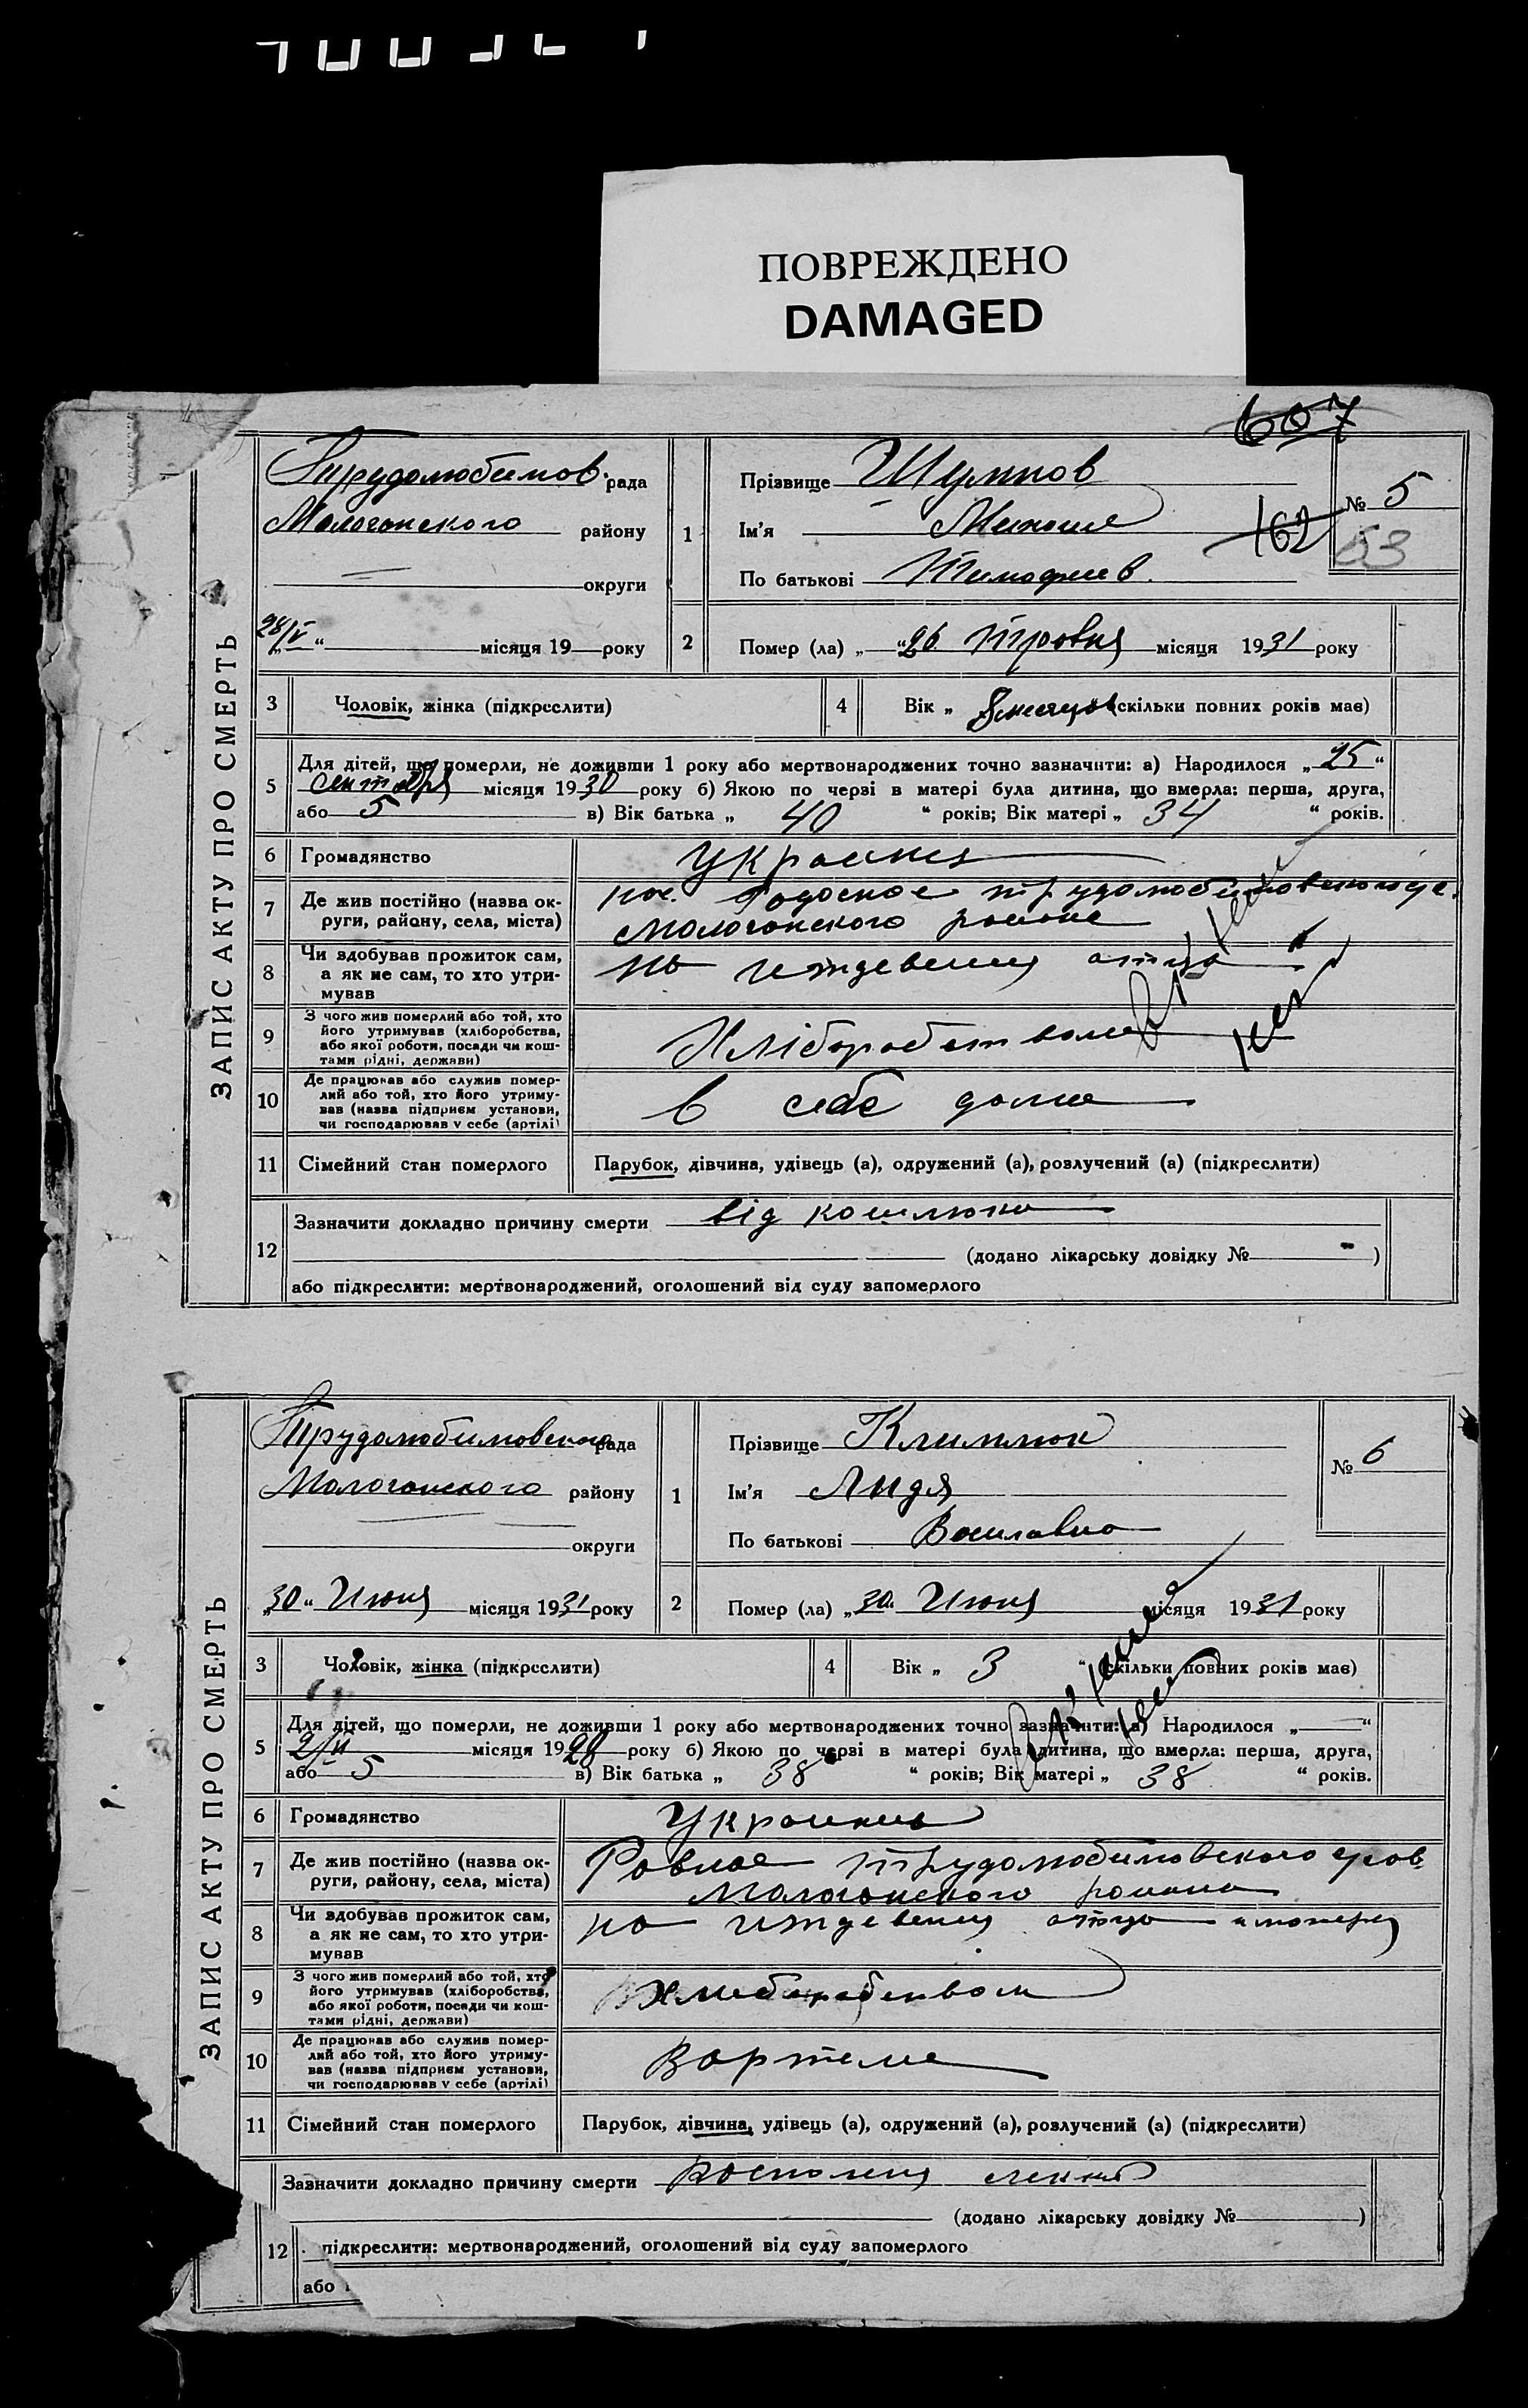 ПОВРЕЖДЕНО
DAMAGED
607
ЗАПИС АКТУ ПРО СМЕРТЬ
Трудолюбимов. рада
району
округи
28/V " місяця 19 року
1
Прізвище
Ім'я
По батькові Тимофеев.
№ 5
162
53
2 Помер (ла) „ "26 Травня місяця 1931 року
3 Чоловік, жінка (підкреслити)
4 Вік „ 8 месяцов (скільки повних років має)
5 Для дітей, що померли, не доживши 1 року або мертвонароджених точно зазначити: а) Народилося „ 25 "
сентября місяця 1930 року б) Якою по черзі в матері була дитина, що вмерла: перша, друга,
або 5 в) Вік батька „ 40 " років; Вік матері „ 34 " років.
6 Громадянство Украинец
7 Де жив постійно (назва округи, району, села, міста) пос.
района
8 Чи здобував прожиток сам, а як не сам, то хто утримував на иждевении отца
9 З чого жив померлий або той, хто його утримував (хліборобства, або якої роботи, посади чи коштами рідні, держави) Хліборобством
10 Де працював або служив померлий або той, хто його утримував (назва підприєм установи, чи господарював у себе (артілі) в себе дома
11 Сімейний стан померлого Парубок, дівчина, удівець (а), одружений (а), розлучений (а) (підкреслити)
12 Зазначити докладно причину смерти від кошлюка
(додано лікарську довідку № - )
або підкреслити: мертвонароджений, оголошений від суду запомерлого
ЗАПИС АКТУ ПРО СМЕРТЬ
Трудолюбимовского рада
району
округи
„30" Июня місяця 1931 року
1
Прізвище Климлюк
Ім'я Лидя
По батькові Василавна
№ 6
2 Помер (ла) „30. Июня місяця 1931 року
3 Чоловік, жінка (підкреслити)
4 Вік „ 3 " (скільки повних років має)
5 Для дітей, що померли, не доживши 1 року або мертвонароджених точно зазначити: а) Народилося „ "
місяця 1928 року б) Якою по черзі в матері була дитина, що вмерла: перша, друга,
або 5 в) Вік батька „ 38 " років; Вік матері „ 38 " років.
6 Громадянство Украинка
7 Де жив постійно (назва округи, району, села, міста) Ровное Трудолюбимовского
района
8 Чи здобував прожиток сам, а як не сам, то хто утримував на иждевении отца и матери
9 З чого жив померлий або той, хто його утримував (хліборобства, або якої роботи, посади чи коштами рідні, держави)
10 Де працював або служив померлий або той, хто його утримував (назва підприєм установи, чи господарював у себе (артілі) Вартеле
11 Сімейний стан померлого Парубок, дівчина, удівець (а), одружений (а), розлучений (а) (підкреслити)
Зазначити докладно причину смерти
(додано лікарську довідку № )
12 підкреслити: мертвонароджений, оголошений від суду запомерлого
або